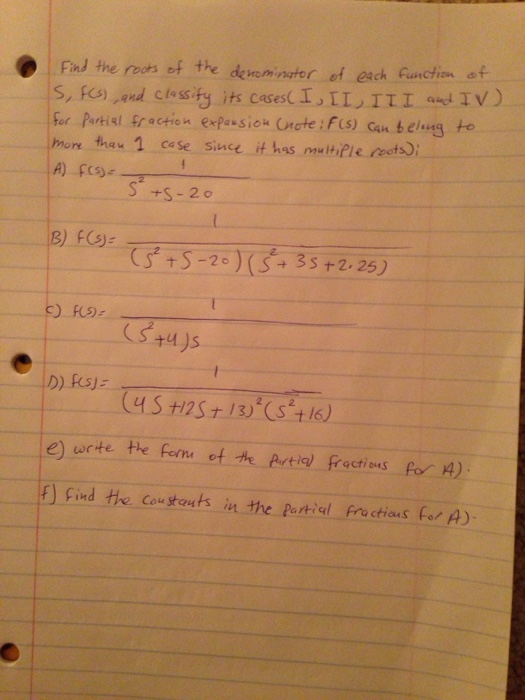 Find the roots of the denominator of each function of
S, f(s), and classify its cases( I, II, III and IV)
for Partial fraction expansion (note: F(s) can belong to
more than 1 case since it has multiple roots):
A) f(s)= 1 / (s²+s-20)
B) f(s)= 1 / ((s²+s-20)(s²+3s+2.25))
c) f(s)= 1 / ((s²+4)s)
D) f(s)= 1 / ((4s+12s+13)²(s²+16))
e) write the form of the partial fractions for A).
f) find the constants in the partial fractions for A).